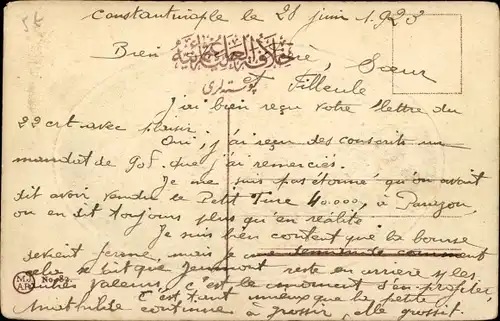 5t
Constantinople le 28 juin 1923
Bien
خلافة العلية عثمانية
پوسته لری
Sœur
et Filleule
J'ai bien reçu votre lettre du
22 crt avec plaisir.
Oui, j'ai reçu des conscrits un
mandat de 90f. que j'ai remerciés.
Je me suis pas étonné qu'on avait
dit avoir vendu le Petit Turc 40000, à
on en dit toujours plus qu'en réalité
Je suis bien content que la bourse
devient ferme, mais je me demande comment
cela se fait que reste en arrière
valeurs, c'est le moment d'en profiter,
c'est tant mieux que la petite
Mathilde continue à grossir, elle grossit.
MJ
AR
No 82